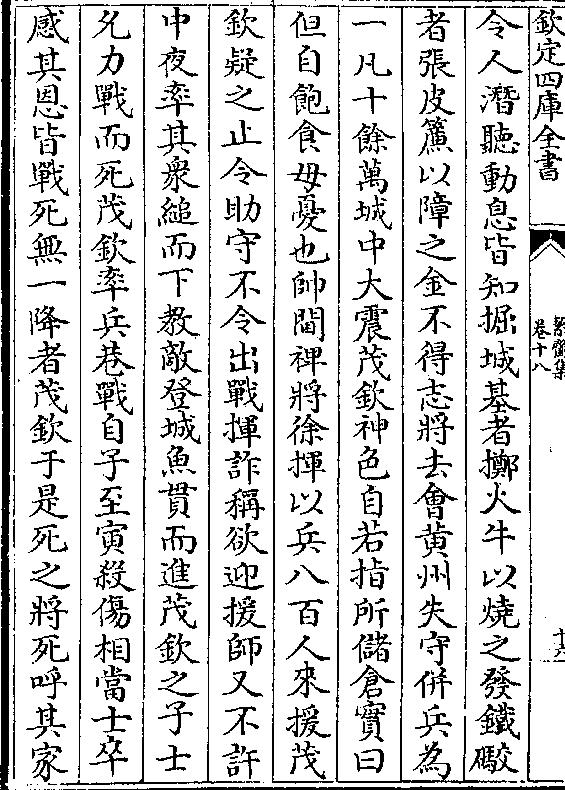 欽定四庫全書
絜齋集
卷十八
十六
令人潛聽動息皆知掘城基者擲火牛以燒之發鐵礮
者張皮簾以障之金不得志將去會黄州失守併兵為
一凡十餘萬城中大震茂欽神色自若指所儲倉實曰
但自飽食毋憂也帥閫裨將徐揮以兵八百人來援茂
欽疑之止令助守不令出戰揮詐稱欲迎援師又不許
中夜率其衆縋而下教敵登城魚貫而進茂欽之子士
允力戰而死茂欽率兵巷戰自子至寅殺傷相當士卒
感其恩皆戰死無一降者茂欽于是死之將死呼其家